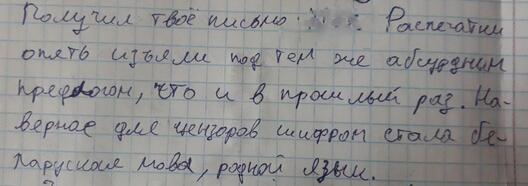 Получил твоё письмо. Распечатки
опять изъяли под тем же абсурдным
предлогом, что и в прошлый раз. На-
верное для цензоров шифром стала бе-
ларуская мова, родной язык.